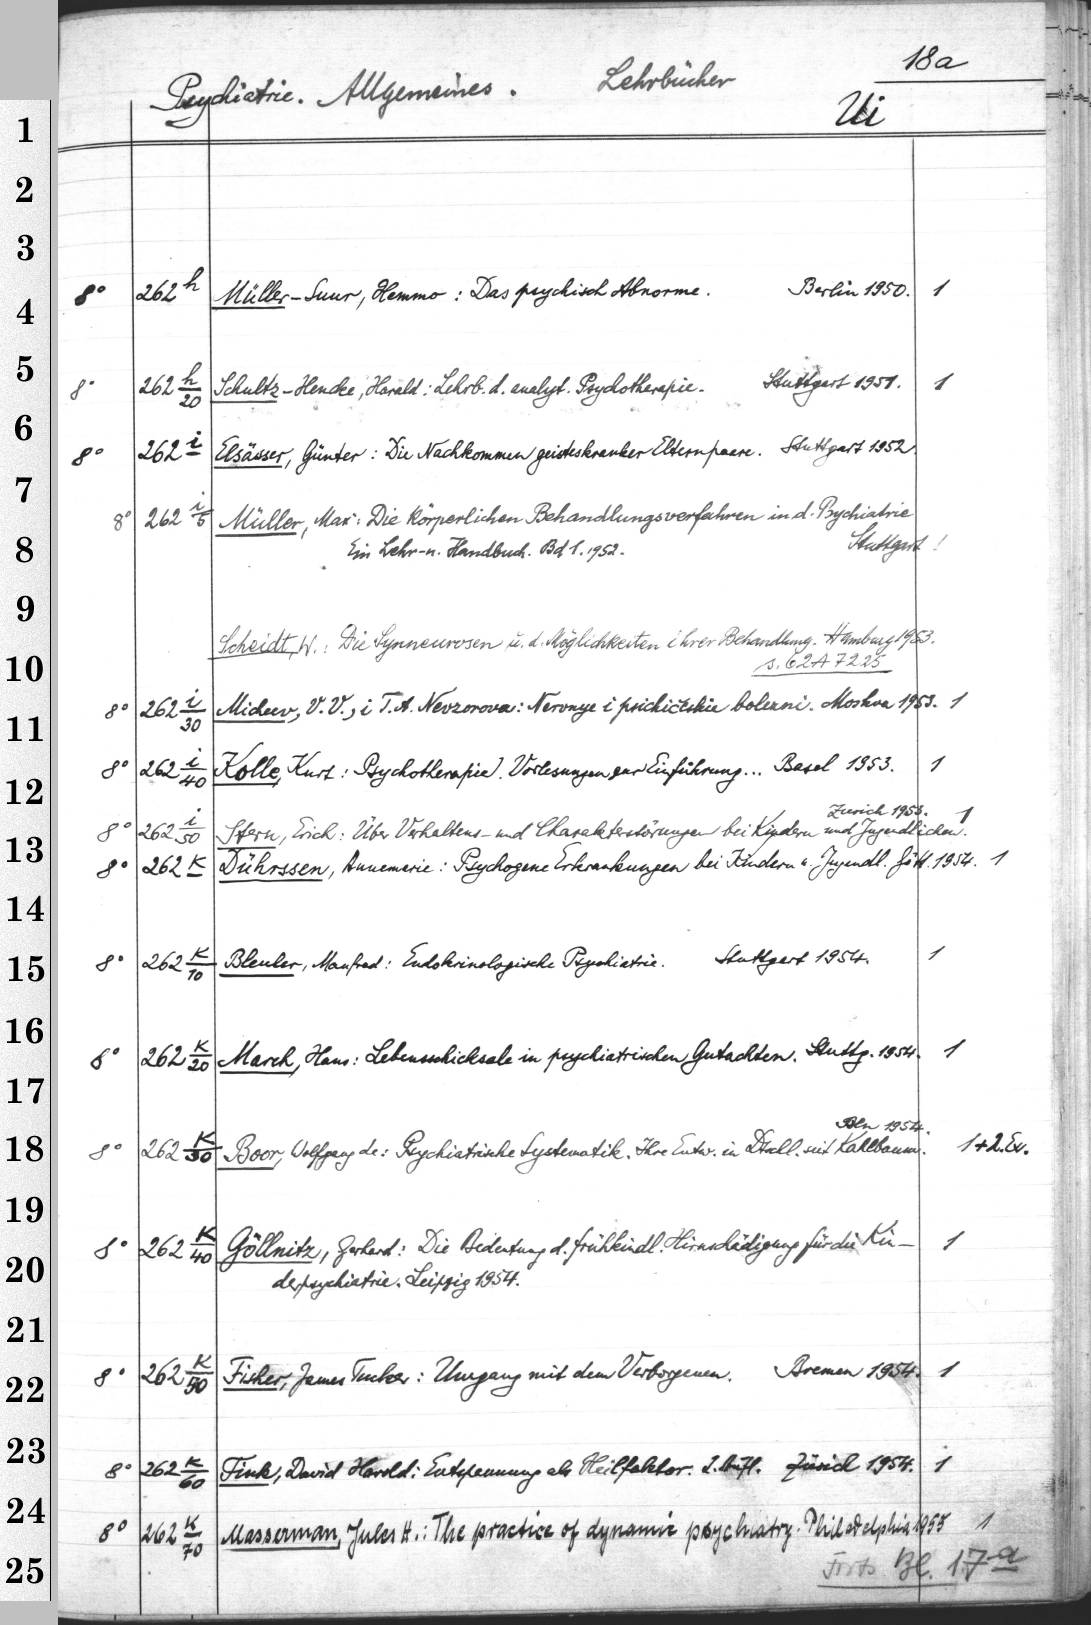 18a
Psychiatrie. Allgemeines. Lehrbücher
Ui
1
2
3
8° 262 h Müller-Suur, Hemmo: Das psychisch Abnorme. Berlin 1950. 1
4
5
8° 262 h/20 Schultz-Hencke, Harald: Lehrb. d. analyt. Psychotherapie. Stuttgart 1951. 1
6
8° 262 i Elsässer, Günter: Die Nachkommen geisteskranker Elternpaare. Stuttgart 1952.
7
8° 262 i/5 Müller, Max: Die körperlichen Behandlungsverfahren in d. Psychiatrie
8
Ein Lehr- u. Handbuch. Bd 1. 1952. Stuttgart 1
9
Scheidt, W.: Die Synneurosen u. d. Möglichkeiten ihrer Behandlung. Hamburg 1953.
10
s. 62A7225
8° 262 i/30 Mideev, V. V., i T. A. Nevzorova: Nervnye i psichičeskie bolezni. Moskva 1953. 1
11
8° 262 i/40 Kolle, Kurt: Psychotherapie. Vorlesungen zur Einführung... Basel 1953. 1
12
Zürich 1953. 1
8° 262 i/50 Stern, Erich: Über Verhaltens- und Charakterstörungen bei Kindern und Jugendlichen.
13
8° 262 k Dührssen, Annemarie: Psychogene Erkrankungen bei Kindern u. Jugendl. Gött. 1954. 1
14
8° 262 k/10 Bleuler, Manfred: Endokrinologische Psychiatrie. Stuttgart 1954. 1
15
16
8° 262 k/20 March, Hans: Lebensschicksale in psychiatrischen Gutachten. Stuttg. 1954. 1
17
Bln 1954.
8° 262 k/30 Boor, Wolfgang de: Psychiatrische Systematik. Ihre Entw. in Dtschl. seit Kahlbaum. 1+2. Ex.
18
19
8° 262 k/40 Göllnitz, Gerhard: Die Bedeutung d. frühkindl. Hirnschädigung für die Kin-
20
derpsychiatrie. Leipzig 1954.
21
8° 262 k/50 Fisher, James Tucker: Umgang mit dem Verborgenen. Bremen 1954. 1
22
23
8° 262 k/60 Fink, David Harold: Entspannung als Heilfaktor. 2. Aufl. Zürich 1954. 1
24
8° 262 k/70 Masserman, Jules H.: The practice of dynamic psychiatry. Philadelphia 1955 1
25
Forts Bl. 17a